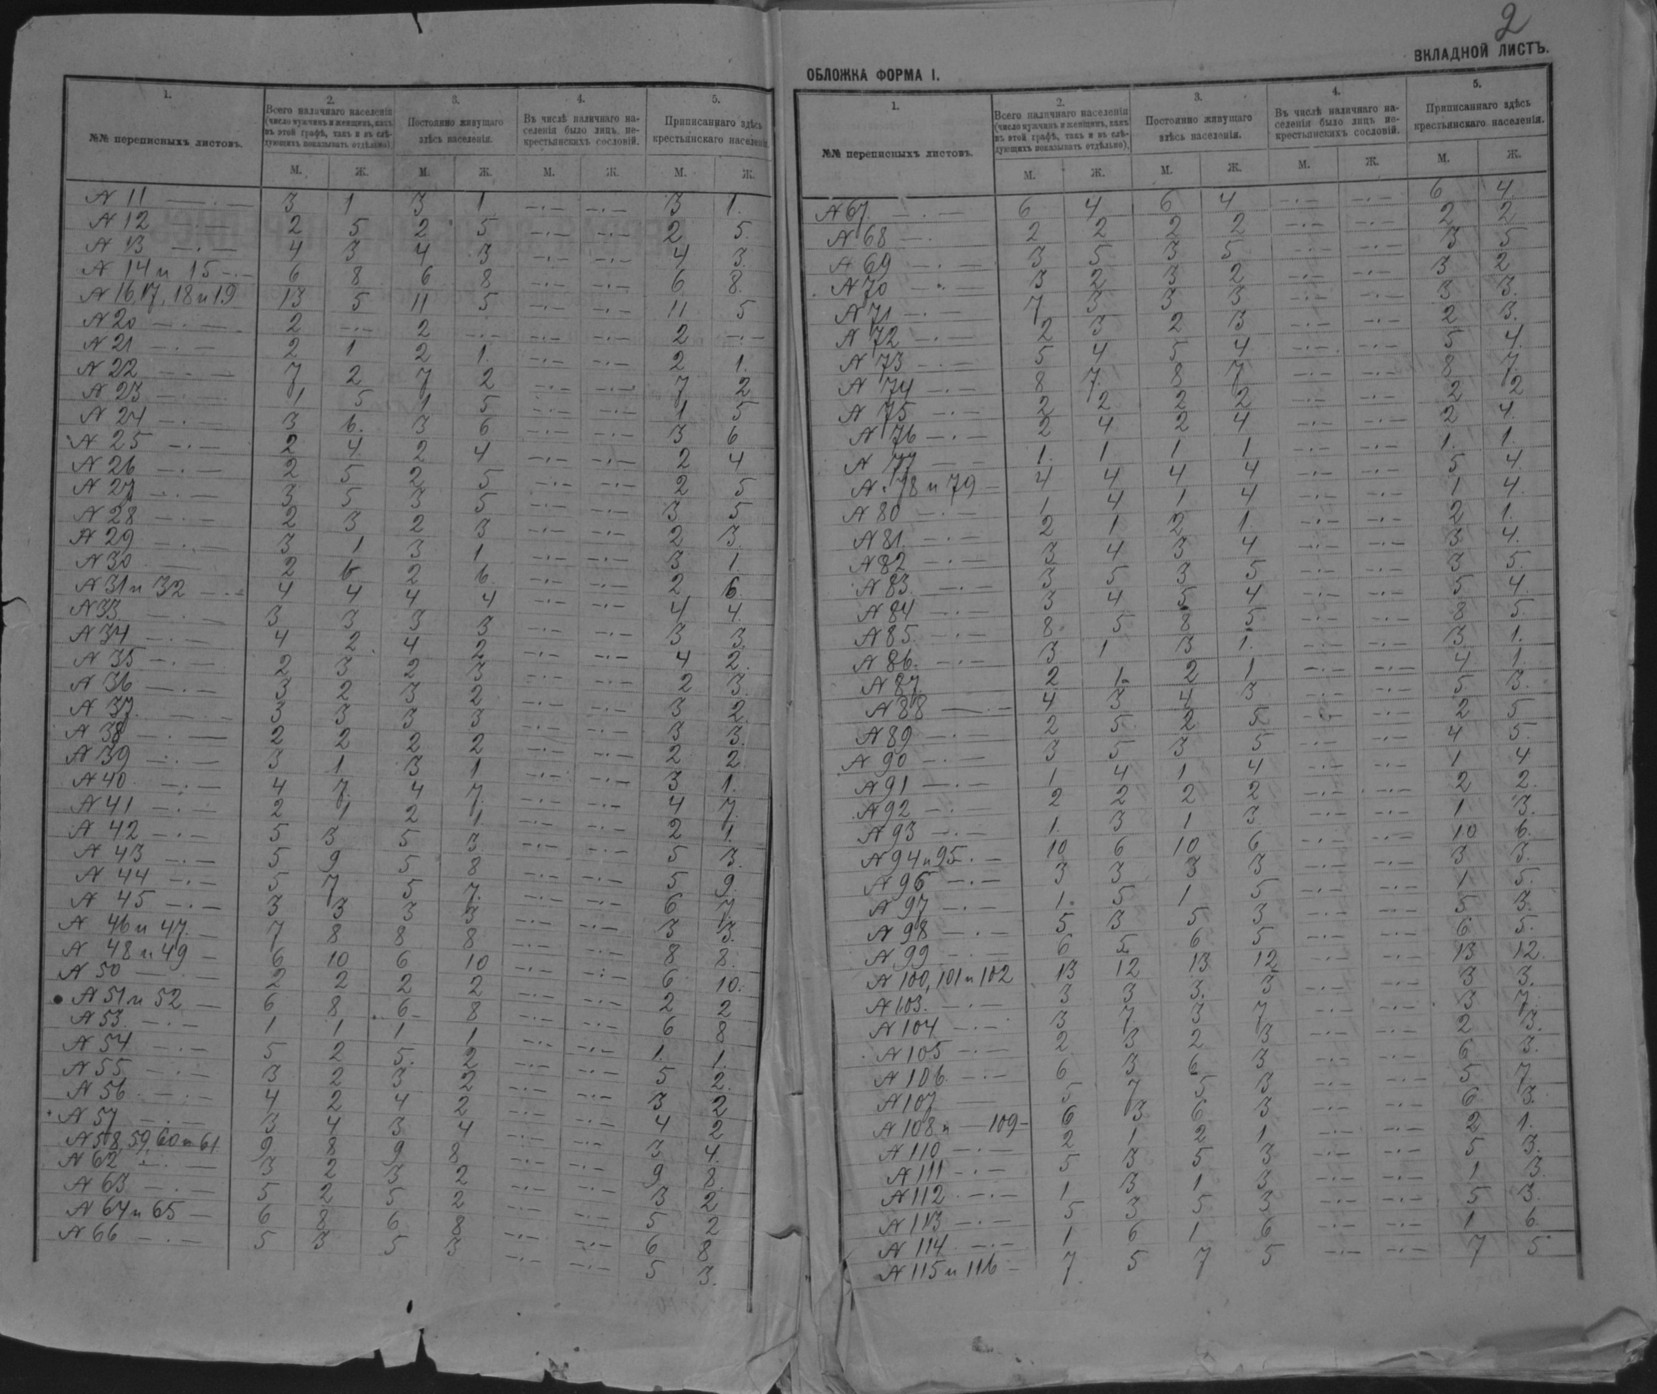 2
ВКЛАДНОЙ ЛИСТЪ.
ОБЛОЖКА ФОРМА I.
1. 2. 3. 4. 5.
№№ переписныхъ листовъ. Всего наличнаго населенія (число мужчинъ и женщинъ, какъ въ этой графѣ, такъ и въ слѣдующихъ показывать отдѣльно). Постоянно живущаго здѣсь населенія. Въ числѣ наличнаго населенія было лицъ некрестьянскихъ сословій. Приписаннаго здѣсь крестьянскаго населенія
М. Ж. М. Ж. М. Ж. М. Ж.
№ 11 — 3 1 3 1 —.— —.— 3 1.
№ 12 — 2 5 2 5 —.— —.— 2 5
№ 13 —.— 4 3 4 3 —.— —.— 4 3.
№ 14 и 15 —.— 6 8 6 8 —.— —.— 6 8.
№ 16 17, 18 и 19 13 5 11 5 —.— —.— 11 5
№ 20 —.— 2 —.— 2 —.— —.— —.— 2 —.—
№ 21 —.— 2 1 2 1. —.— —.— 2 1.
№ 22 —.— 7 2 7 2 —.— —.— 7 2
№ 23 —.— 1 5 1 5 —.— —.— 1 5
№ 24 —.— 3 6. 3 6 —.— —.— 3 6
№ 25 —.— 2 4 2 4 —.— —.— 2 4
№ 26 —.— 2 5 2 5 —.— —.— 2 5
№ 27 —.— 3 5 3 5 —.— —.— 3 5
№ 28 —.— 2 3 2 3 —.— —.— 2 3.
№ 29 —.— 3 1 3 1 —.— —.— 3 1.
№ 30 2 6 2 6. —.— —.— 2 6
№ 31 и 32 —.— 4 4 4 4 —.— —.— 4 4.
№ 33 —.— 3 3 3 3 —.— —.— 3 3.
№ 34 —.— 4 2 4 2 —.— —.— 4 2.
№ 35 —.— 2 3 2 3 —.— —.— 2 3.
№ 36 —.— 3 2 3 2 —.— —.— 3 2.
№ 37. —.— 3 3 3 3 —.— —.— 3 3.
№ 38 —.— 2 2 2 2 —.— —.— 2 2.
№ 39 —.— 3 1 3 1 —.— —.— 3 1.
№ 40 —.— 4 7 4 7 —.— —.— 4 7.
№ 41 —.— 2 1 2 1 —.— —.— 2 1.
№ 42 —.— 5 3 5 3 —.— —.— 5 3.
№ 43 —.— 5 9 5 8 —.— —.— 5 9.
№ 44 —.— 5 7 5 7. —.— —.— 6 7.
№ 45 —.— 3 3 3 3 —.— —.— 3 3.
№ 46 и 47 7 8 8 8 —.— —.— 8 8.
№ 48 и 49 — 6 10 6 10 —.— —.— 6 10.
№ 50 —.— 2 2 2 2 —.— —.— 2 2
№ 51 и 52 — 6 8 6 8 —.— —.— 6 8
№ 53 —.— 1 1 1 1 —.— —.— 1. 1.
№ 54 —.— 5 2 5. 2 —.— —.— 5 2.
№ 55 —.— 3 2 3 2 —.— —.— 3 2
№ 56 —.— 4 2 4 2 —.— —.— 4 2
№ 57 —.— 3 4 3 4 —.— —.— 3 4.
№ 58, 59, 60 и 61 9 8 9 8 —.— —.— 9 8.
№ 62 —.— 3 2 3 2 —.— —.— 3 2
№ 63 —.— 5 2 5 2 —.— —.— 5 2
№ 64 и 65 — 6 8 6 8 —.— —.— 6 8
№ 66 —.— 5 3 5 3 —.— —.— 5 3.
1. 2. 3. 4. 5.
№№ переписныхъ листовъ. Всего наличнаго населенія (число мужчинъ и женщинъ, какъ въ этой графѣ, такъ и въ слѣдующихъ показывать отдѣльно). Постоянно живущаго здѣсь населенія. Въ числѣ наличнаго населенія было лицъ некрестьянскихъ сословій. Приписаннаго здѣсь крестьянскаго населенія.
М. Ж. М. Ж. М. Ж. М. Ж.
№ 67. —.— 6 4 6 4 —.— —.— 6 4
№ 68 —. 2 2 2 2 —.— —.— 2 2
№ 69 —.— 3 5 3 5 —.— —.— 3 5
№ 70 —.— 3 2 3 2 —.— —.— 3 2
№ 71 —.— 7 3 3 3 —.— —.— 3 3.
№ 72 —.— 2 3 2 3 —.— —.— 2 3.
№ 73 —.— 5 4 5 4 —.— —.— 5 4.
№ 74 —.— 8 7. 8 7 —.— —.— 8 7.
№ 75 —.— 2 2 2 2 —.— —.— 2 2
№ 76 —.— 2 4 2 4 —.— —.— 2 4.
№ 77 — 1. 1 1 1 —.— —.— 1. 1.
№ 78 и 79 — 4 4 4 4 —.— —.— 5 4.
№ 80 —.— 1 4 1 4 —.— —.— 1 4.
№ 81 —.— 2 1 2 1. —.— —.— 2 1.
№ 82 —.— 3 4 3 4 —.— —.— 3 4.
№ 83. —.— 3 5 3 5 —.— —.— 3 5.
№ 84 —.— 3 4 5 4 —.— —.— 5 4.
№ 85. —.— 8 5 8 5 —.— —.— 8 5
№ 86. —.— 3 1 3 1. —.— —.— 3 1.
№ 87. 2 1. 2 1 —.— —.— 4 1.
№ 88 —.— 4 3 4 3 —.— —.— 5 3.
№ 89 —.— 2 5. 2 5 —.— —.— 2 5
№ 90 —.— 3 5 3 5 —.— —.— 4 5.
№ 91 —.— 1 4 1 4 —.— —.— 1 4
№ 92 —.— 2 2 2 2 —.— —.— 2 2.
№ 93 —.— 1. 3 1 3. —.— —.— 1 3.
№ 94 и 95. — 10 6 10 6 —.— —.— 10 6.
№ 96 —.— 3 3 3 3 —.— —.— 3 3.
№ 97 —.— 1. 5 1 5 —.— —.— 1 5.
№ 98 —.— 5 3 5 3 —.— —.— 5 3.
№ 99 —.— 6 5 6 5 —.— —.— 6 5.
№ 100, 101 и 102 13 12 13 12 —.— —.— 13 12.
№ 103. —.— 3 3 3. 3 —.— —.— 3 3.
№ 104 —.— 3 7 3 7 —.— —.— 3 7.
№ 105 —.— 2 3 2 3 —.— —.— 2 3.
№ 106 —.— 6 3 6 3 —.— —.— 6 3.
№ 107 — 5 7 5 3 —.— —.— 5 7
№ 108 и — 109 — 6 3 6 3 —.— —.— 6 3
№ 110 —.— 2 1 2 1 —.— —.— 2 1.
№ 111 —.— 5 3 5 3 —.— —.— 5 3.
№ 112 —.— 1 3 1 3 —.— —.— 1 3
№ 113 —.— 5 3 5 3 —.— —.— 5 3.
№ 114 —.— 1 6 1 6 —.— —.— 1 6
№ 115 и 116 — 7. 5 7 5 —.— —.— 7 5